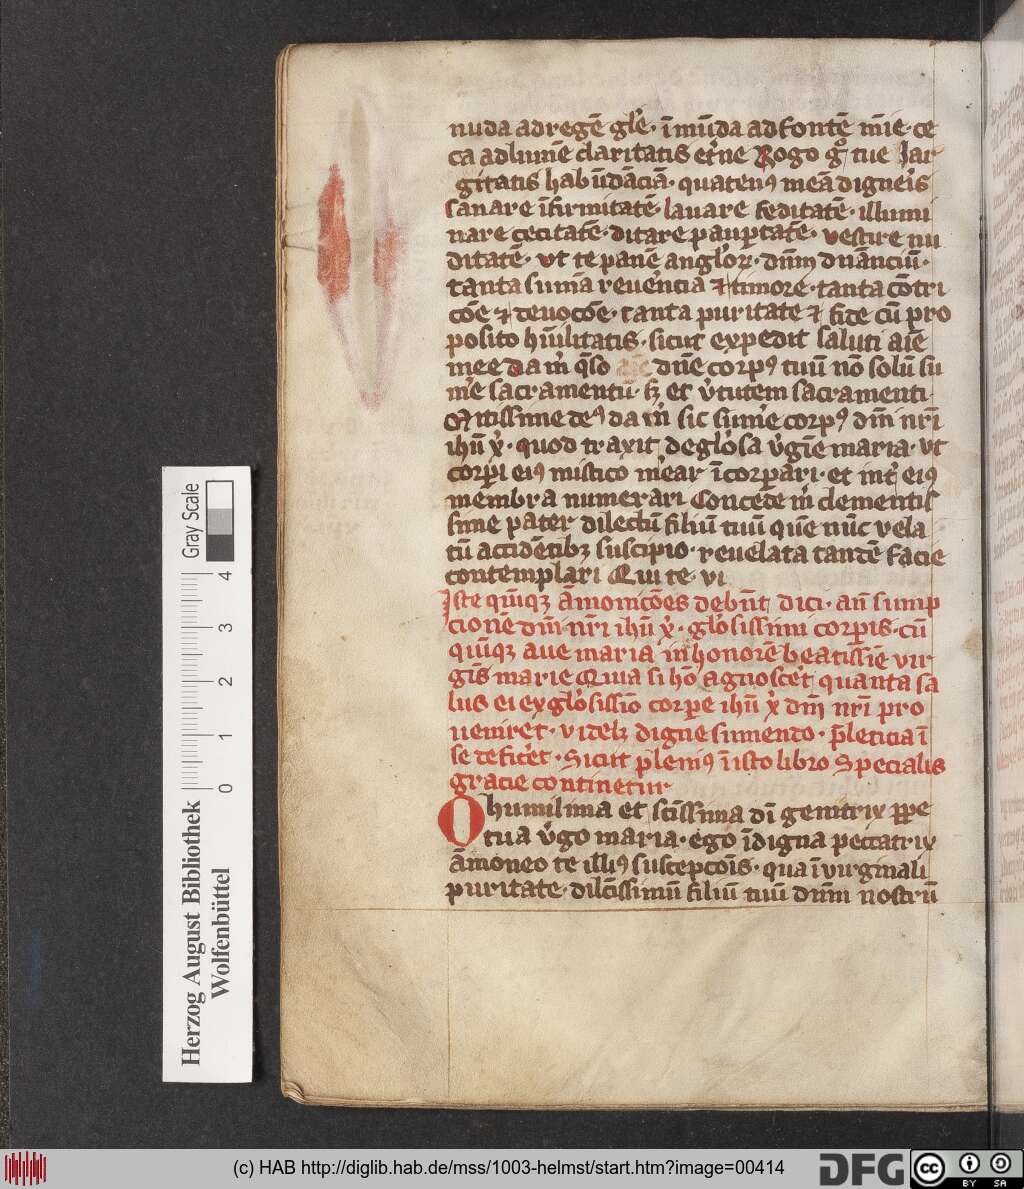 nuda ad regē gl'e · ī mūda ad fontē mīe · ce
ca ad lumē claritatis et'ne Rogo g° tue lar
gitatis habūdāciā · quaten9 meā digneis
sanare īfirmitatē · lauare feditatē · illumi
nare cecitatē · ditare paup̄tatē · vestire nu
ditatē · vt te panē angl'oꝝ · dnm̄ dn̄ānciū ·
tanta sumā reuēncia ⁊ timore · tanta cōtri
cōe ⁊ deuocōe · tanta puritate ⁊ fide cū pro
posito hūilitatis · sicut expedit saluti aīe
mee da m̄ q̄so dn̄e corp9 tuū nō solū su
m'e sacramentū · sꝫ et v'tutem sacramenti
O mitissime de9 da m̄ sic sum'e corp9 dn̄i nr̄i
ihū x̄ · quod traxit de gl'osa v'gīe maria · vt
corpi ei9 mistico m'ear īcorpari · et int' ei9
membra numerari Concede m̄ clementis
sime pater dilectū filiū tuū quē nūc vela
tū accidētibꝫ suscipio · reuelata tandē facie
contemplari Qui te · vi
Iste quīqꝫ āmonicōes debn̄t dici · an̄ sump
cionē dn̄i nr̄i ihū x̄ · gl'osissimi corpis · cū
quīqꝫ aue maria in honorē beatissīe vir
gīs marie Quia si hō agnoscet quanta sa
lus ei ex gl'osissīo corpe ihū x̄ dn̄i nr̄i pro
ueniret · videlꝫ digne sumendo · p̄ leticia ī
se defic'et · Sicut plenī9 ī isto libro Specialis
gracie continetur
O humilima et scīssima dī genitrix ppe
tua v'go maria · ego īdigna peccatrix
āmoneo te illi9 suscepcōis · qua ī virginali
puritate · dilc̄issimū filiū tuū dnm̄ nostrū
Gray Scale
4 3 2 1 0
Herzog August Bibliothek
Wolfenbüttel
(c) HAB http://diglib.hab.de/mss/1003-helmst/start.htm?image=00414
DFG
cc BY SA